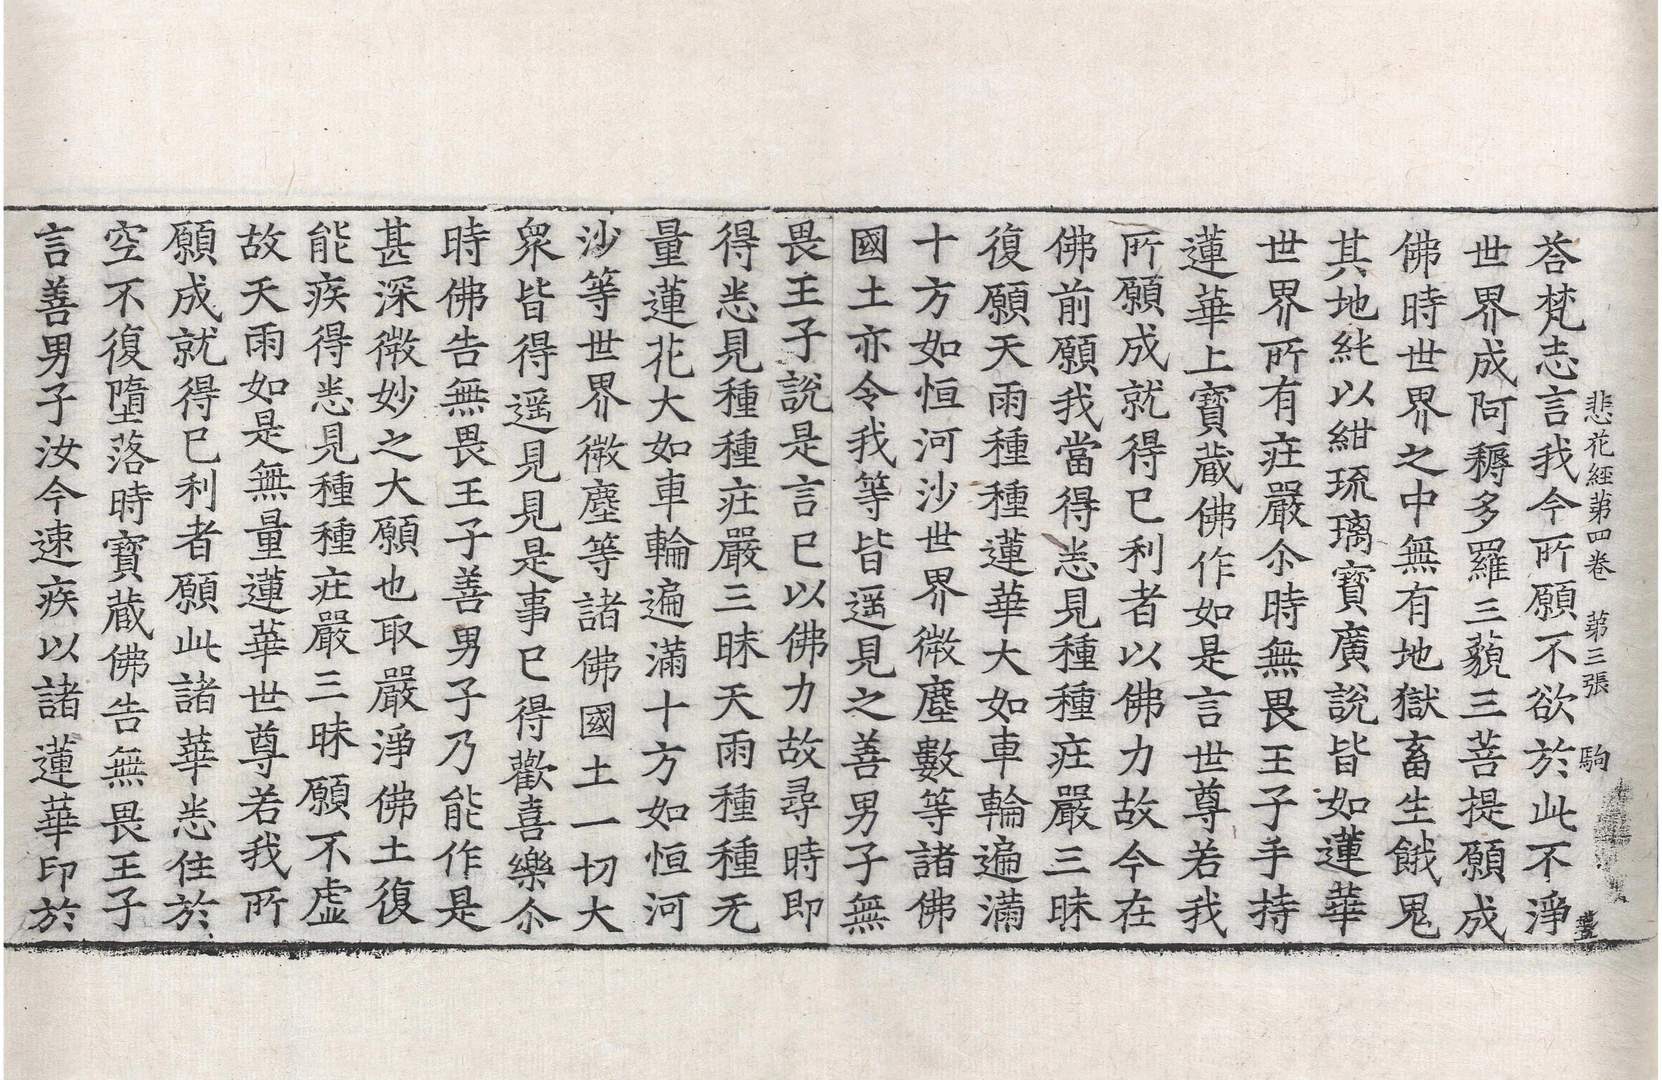 悲花経苐四卷　苐三張　駒
荅梵志言我今所願不欲於此不淨
世界成阿耨多羅三藐三菩提願成
佛時世界之中無有地獄畜生餓鬼
其地純以紺琉璃寳廣說皆如蓮華
世界所有庄嚴尒時無畏王子手持
蓮華上寳蔵佛作如是言世尊若我
所願成就得已利者以佛力故今在
佛前願我當得悉見種種庄嚴三昧
復願天雨種種蓮華大如車輪遍滿
十方如恒河沙世界微塵數等諸佛
國土亦令我等皆遥見之善男子無
畏王子說是言已以佛力故尋時即
得悉見種種庄嚴三昧天雨種種无
量蓮花大如車輪遍滿十方如恒河
沙等世界微塵等諸佛國土一切大
衆皆得遥見見是事已得歡喜樂尒
時佛告無畏王子善男子乃能作是
甚深微妙之大願也取嚴淨佛土復
能疾得悉見種種庄嚴三昧願不虛
故天雨如是無量蓮華世尊若我所
願成就得已利者願此諸華悉住於
空不復墮落時寳蔵佛告無畏王子
言善男子汝今速疾以諸蓮華印於